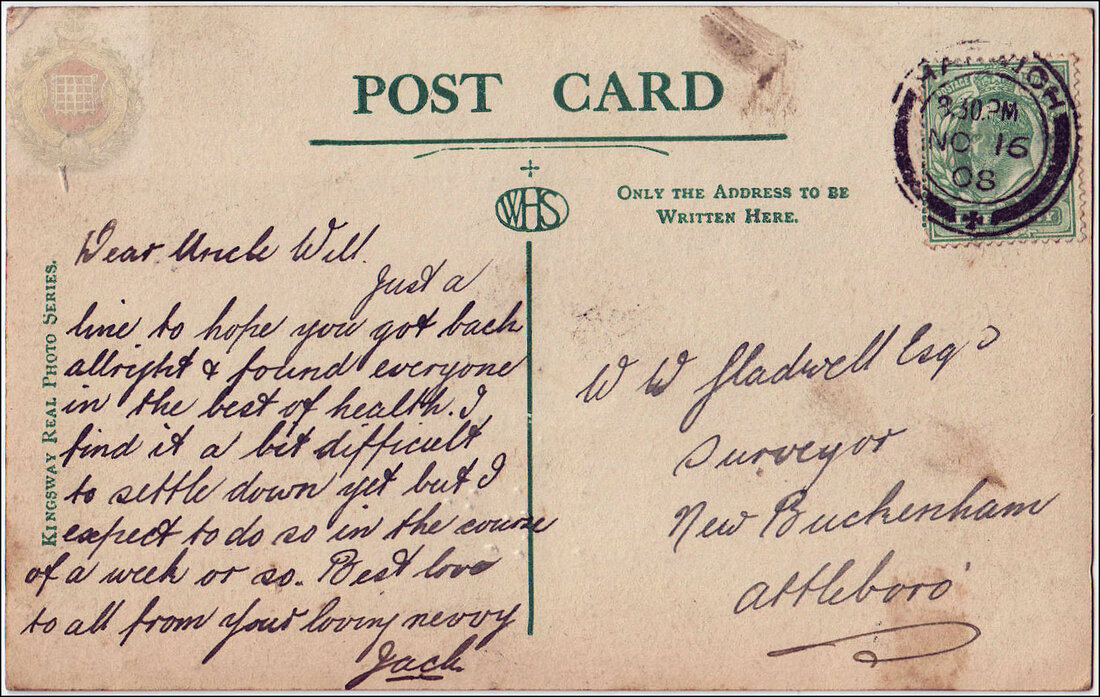 POST CARD
WHS
ONLY THE ADDRESS TO BE
WRITTEN HERE.
8.30.PM
NO 16
08
KINGSWAY REAL PHOTO SERIES.
Dear Uncle Will.
Just a
line to hope you got back
allright & found everyone
in the best of health. I
find it a bit difficult
to settle down yet but I
expect to do so in the course
of a week or so. Best love
to all from your loving nevvy
Jack.
W W Gladwell Esqre
Surveyor
New Buckenham
Attleboro'